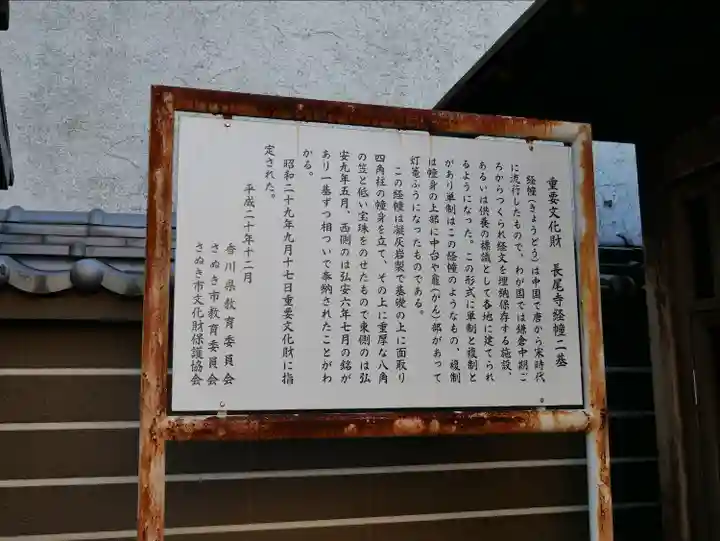 重要文化財　長尾寺経幢二基
経幢（きょうどう）は中国で唐から宋時代
に流行したもので、わが国では鎌倉中期ご
ろからつくられ経文を埋納保存する施設、
あるいは供養の標識として各地に建てられ
るようになった。この形式に単制と複制と
があり単制はこの経幢のようなもの、複制
は幢身の上部に中台や龕（がん）部があって
灯篭ふうになったものである。
この経幢は凝灰岩製で基礎の上に面取り
四角柱の幢身を立て、その上に重厚な八角
の笠と低い宝珠をのせたもので東側のは弘
安九年五月、西側のは弘安六年七月の銘が
あり一基ずつ相ついで奉納されたことがわ
かる。
昭和二十九年九月十七日重要文化財に指
定された。
平成二十年十二月
香川県教育委員会
さぬき市教育委員会
さぬき市文化財保護協会